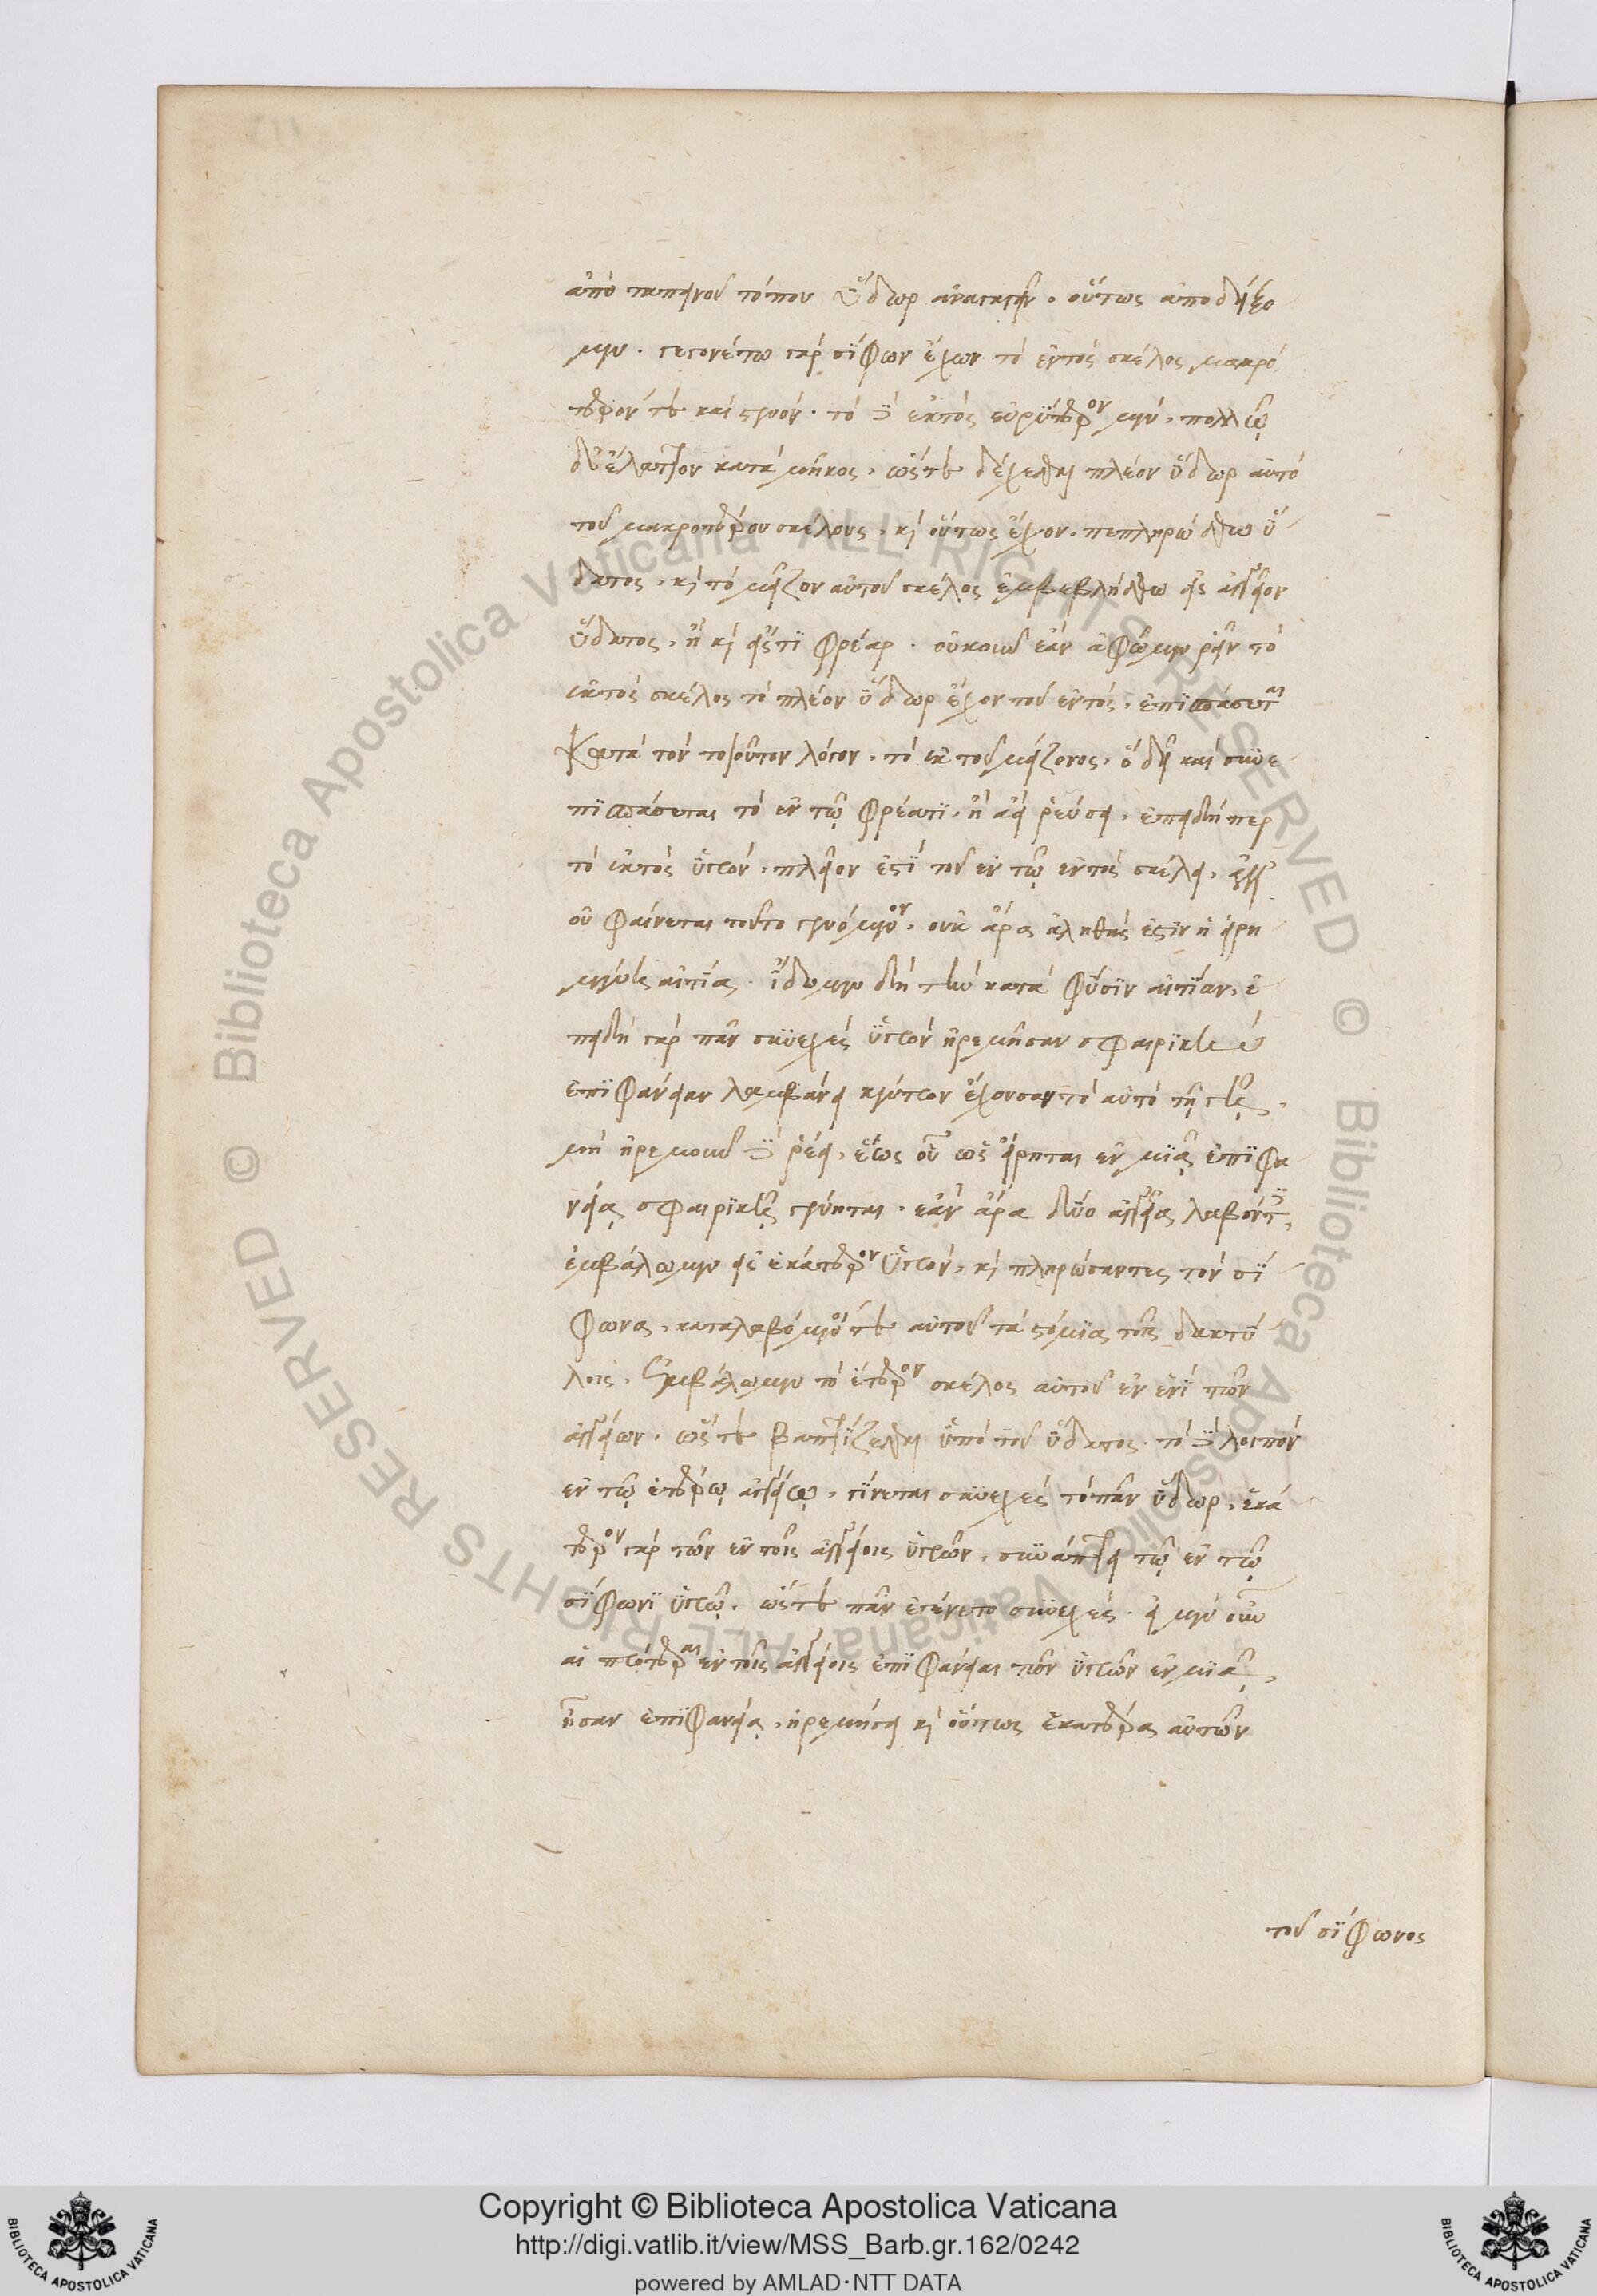 ἀπὸ ταπεινοῦ τόπου ὕδωρ ἀνασπᾶν. οὕτως ἀποδείξο
μεν. γεγονέτω γὰρ σίφων ἔχων τὸ ἐντὸς σκέλος μακρό
τερόν τε καὶ στενόν. τὸ δὲ ἐκτὸς εὐρύτερον μέν, πολλῷ
δὲ ἔλαττον κατὰ μῆκος, ὥστε δέχεσθαι πλέον ὕδωρ αὐτὸ
τοῦ μακροτέρου σκέλους, καὶ οὕτως ἔχον, πεπληρώσθω ὕ
δατος, καὶ τὸ μεῖζον αὐτοῦ σκέλος ἐμβεβλήσθω εἰς ἀγγεῖον
ὕδατος, ἢ καὶ εἴς τι φρέαρ. οὐκοῦν ἐὰν ἀφῶμεν ῥεῖν τὸ
ἐκτὸς σκέλος τὸ πλέον ὕδωρ ἔχον τοῦ ἐντός, ἐπισπάσεται
κατὰ τὸν τοιοῦτον λόγον, τὸ ἐκ τοῦ μείζονος, ὃ δὴ καὶ συνε
πισπάσεται τὸ ἐν τῷ φρέατι, ἢ ἀεὶ ῥεύσει, ἐπειδήπερ
τὸ ἐκτὸς ὑγρόν, πλεῖόν ἐστι τοῦ ἐν τῷ ἐντὸς σκέλει, ἀλλ'
οὐ φαίνεται τοῦτο γενόμενον, οὐκ ἄρα ἀληθής ἐστιν ἡ εἰρη
μένη αἰτία. ἴδωμεν δὴ τὴν κατὰ φύσιν αἰτίαν, ἐ
πειδὴ γὰρ πᾶν συνεχὲς ὑγρὸν ἠρεμῆσαν σφαιρικὴν
ἐπιφάνειαν λαμβάνει κέντρον ἔχουσαν τὸ αὐτὸ τῇ γῇ,
μὴ ἠρεμοῦν δὲ ῥέει, ἕως οὗ ὡς εἴρηται ἐν μιᾷ ἐπιφα
νείᾳ σφαιρικῇ γένηται. ἐὰν ἄρα δύο ἀγγεῖα λαβόντες,
ἐμβάλωμεν εἰς ἑκάτερον ὑγρόν, καὶ πληρώσαντες τὸν σί
φωνα, καταλαβόμενοί τε αὐτοῦ τὰ στόμια τοῖς δακτύ
λοις, ἐμβάλωμεν τὸ ἕτερον σκέλος αὐτοῦ ἐν ἑνὶ τῶν
ἀγγείων, ὥστε βαπτίζεσθαι ὑπὸ τοῦ ὕδατος. τὸ δὲ λοιπὸν
ἐν τῷ ἑτέρῳ ἀγγείῳ, γίνεται συνεχὲς τὸ πᾶν ὕδωρ, ἑκά
τερον γὰρ τῶν ἐν τοῖς ἀγγείοις ὑγρῶν, συνάπτει τῷ ἐν τῷ
σίφωνι ὑγρῷ. ὥστε πᾶν ἐγένετο συνεχές. εἰ μὲν οὖν
αἱ πρότεραι ἐν τοῖς ἀγγείοις ἐπιφάνειαι τῶν ὑγρῶν ἐν μιᾷ
ἦσαν ἐπιφανείᾳ, ἠρεμήσει καὶ οὕτως ἑκατέρα αὐτῶν
τοῦ σίφωνος
© Biblioteca Apostolica Vaticana ALL RIGHTS RESERVED © Biblioteca Apostolica Vaticana ALL RIGHTS RESERVED
Copyright © Biblioteca Apostolica Vaticana
http://digi.vatlib.it/view/MSS_Barb.gr.162/0242
powered by AMLAD·NTT DATA
BIBLIOTECA APOSTOLICA VATICANA
BIBLIOTECA APOSTOLICA VATICANA